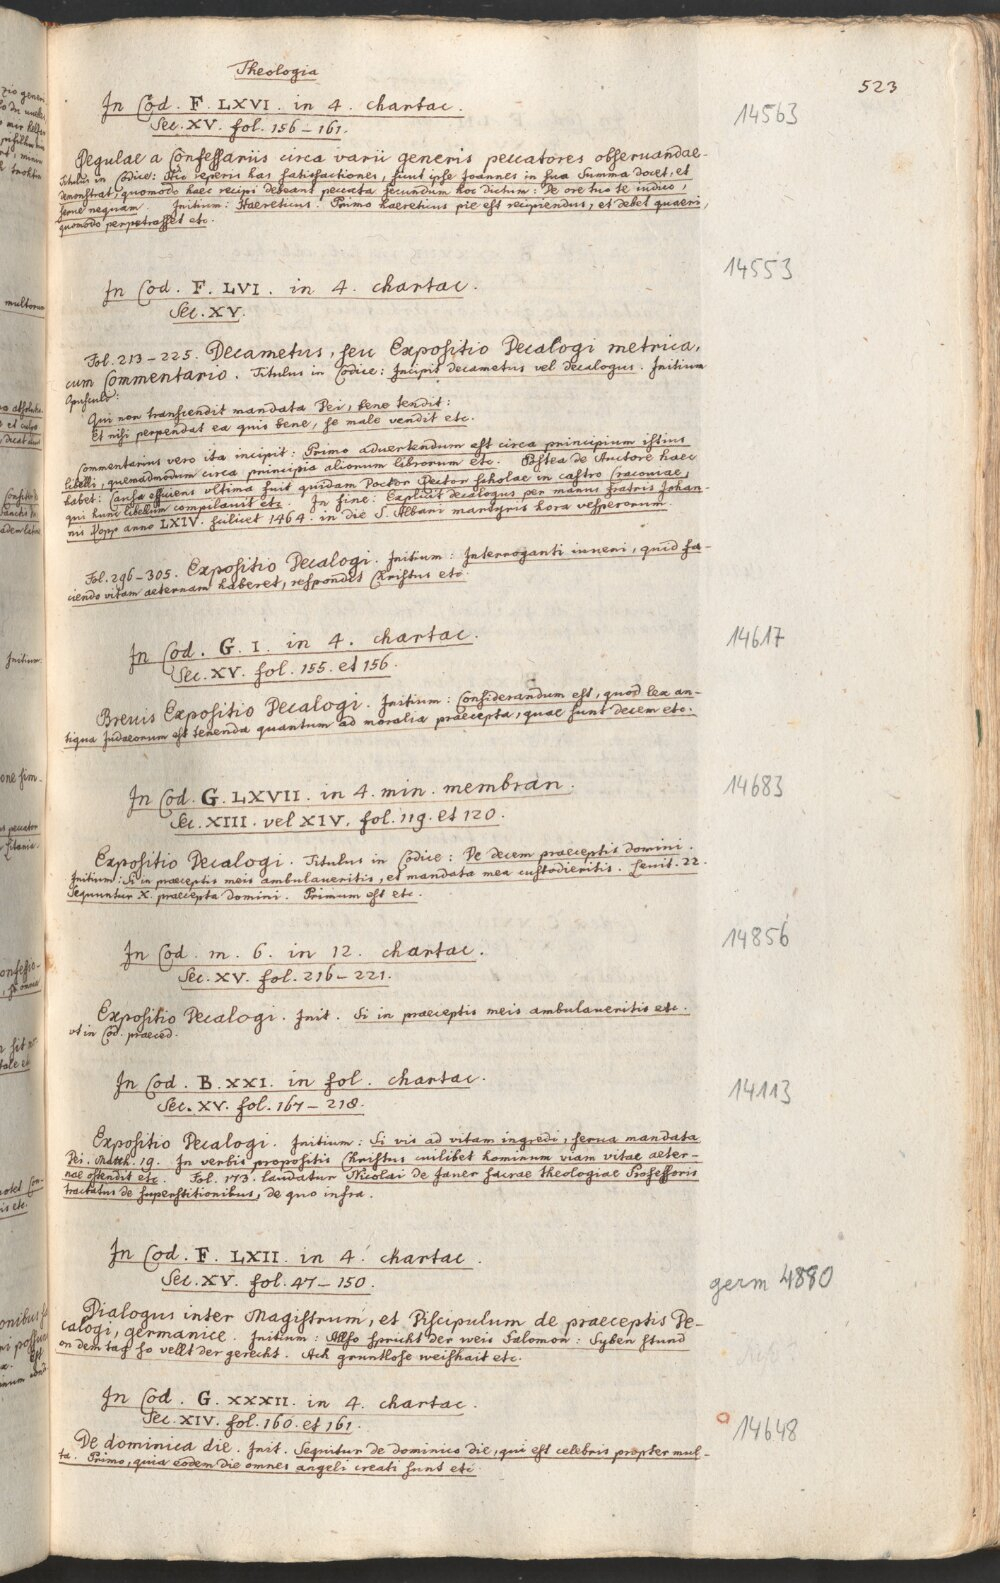 Theologia
523
In Cod. F. LXVI. in 4. chartac.
14563
Sec. XV. fol. 156-161.
Regulae a Confessariis circa varii generis peccatores observandae.
Titulus in Codice: Hic reperis has satisfactiones, sunt ipse Joannes in sua Summa docet, et
demonstrat, quomodo haec recipi debeant peccata secundum hoc dictum: De ore tuo te iudico,
serve nequam. Initium: Haereticus. Primo haereticus pie est recipiendus, et debet quaeri,
quomodo perpetrasset etc.
In Cod. F. LVI. in 4. chartac.
14553
Sec. XV.
Fol. 213-225. Decametus, seu Expositio Decalogi metrica,
cum Commentario. Titulus in Codice: Incipit decametus vel decalogus. Initium
Opusculi:
Qui non transcendit mandata Dei, bene tendit:
Et nisi perpendat ea quis bene, se male vendit etc.
Commentarius vero ita incipit: Primo advertendum est circa principium istius
libelli, quemadmodum circa principia aliorum librorum etc. Postea de Auctore haec
habet: Causa efficiens ultima fuit quidam Doctor Rector scholae in castro Cracoviae,
qui hunc libellum compilavit etc. In fine: Explicit decalogus per manus fratris Johan-
nis Popp anno LXIV. scilicet 1464. in die S. Albani martyris hora vesperorum.
Fol. 296-305. Expositio Decalogi. Initium: Interroganti iuveni, quid fa-
ciendo vitam aeternam haberet, respondit Christus etc.
In Cod. G. I. in 4. chartac.
14617
Sec. XV. fol. 155. et 156.
Brevis Expositio Decalogi. Initium: Considerandum est, quod lex an-
tiqua Judaeorum est tenenda quantum ad moralia praecepta, quae sunt decem etc.
In Cod. G. LXVII. in 4. min. membran.
14683
Sec. XIII. vel XIV. fol. 119. et 120.
Expositio Decalogi. Titulus in Codice: De decem praeceptis domini.
Initium: Si in praeceptis meis ambulaveritis, et mandata mea custodieritis. Levit. 22.
Sequuntur X. praecepta domini. Primum est etc.
In Cod. m. 6. in 12. chartac.
14856
Sec. XV. fol. 216-221.
Expositio Decalogi. Init. Si in praeceptis meis ambulaveritis etc.
ut in Cod. praeced.
In Cod. B. XXI. in fol. chartac.
14113
Sec. XV. fol. 167-218.
Expositio Decalogi. Initium: Si vis ad vitam ingredi, serva mandata
Dei. Matth. 19. In verbis propositis Christus cuilibet hominum viam vitae aeter-
nae ostendit etc. Fol. 173. laudatur Nicolai de Janer sacrae theologiae Professoris
tractatus de superstitionibus, de quo infra.
In Cod. F. LXII. in 4. chartac.
germ 4880
Sec. XV. fol. 47-150.
Dialogus inter Magistrum, et Discipulum de praeceptis De-
calogi, germanice. Initium: Allso spricht der weis Salomon: Syben stund
on dem tag so vellt der gerecht. Ach gruntlose weishait etc.
In Cod. G. XXXII. in 4. chartac.
14648
Sec. XIV. fol. 160. et 161.
De dominica die. Init. Sequitur de dominico die, qui est celebris propter mul-
ta. Primo, quia eodem die omnes angeli creati sunt etc.